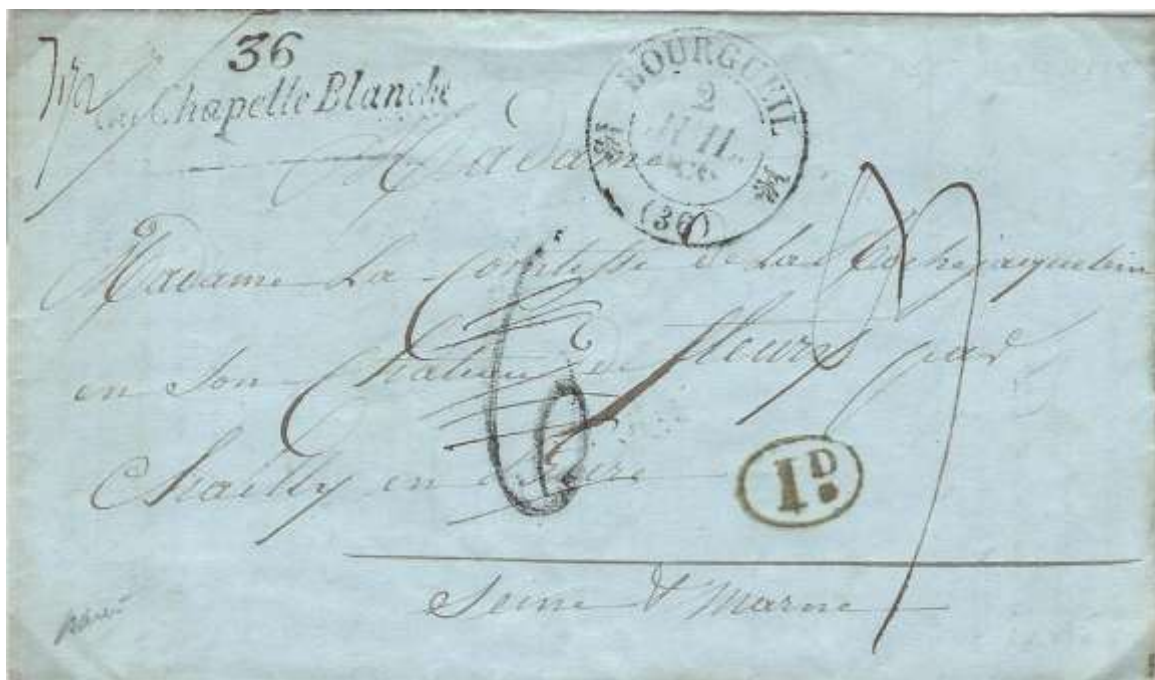 36
La Chapelle Blanche
BOURGUEIL
2
JUIL.
(36)
Madame
Madame La Comtesse de La Rochejaquelein
en son Chateau de fleury par
Chailly en Bierre
1D
Seine & Marne